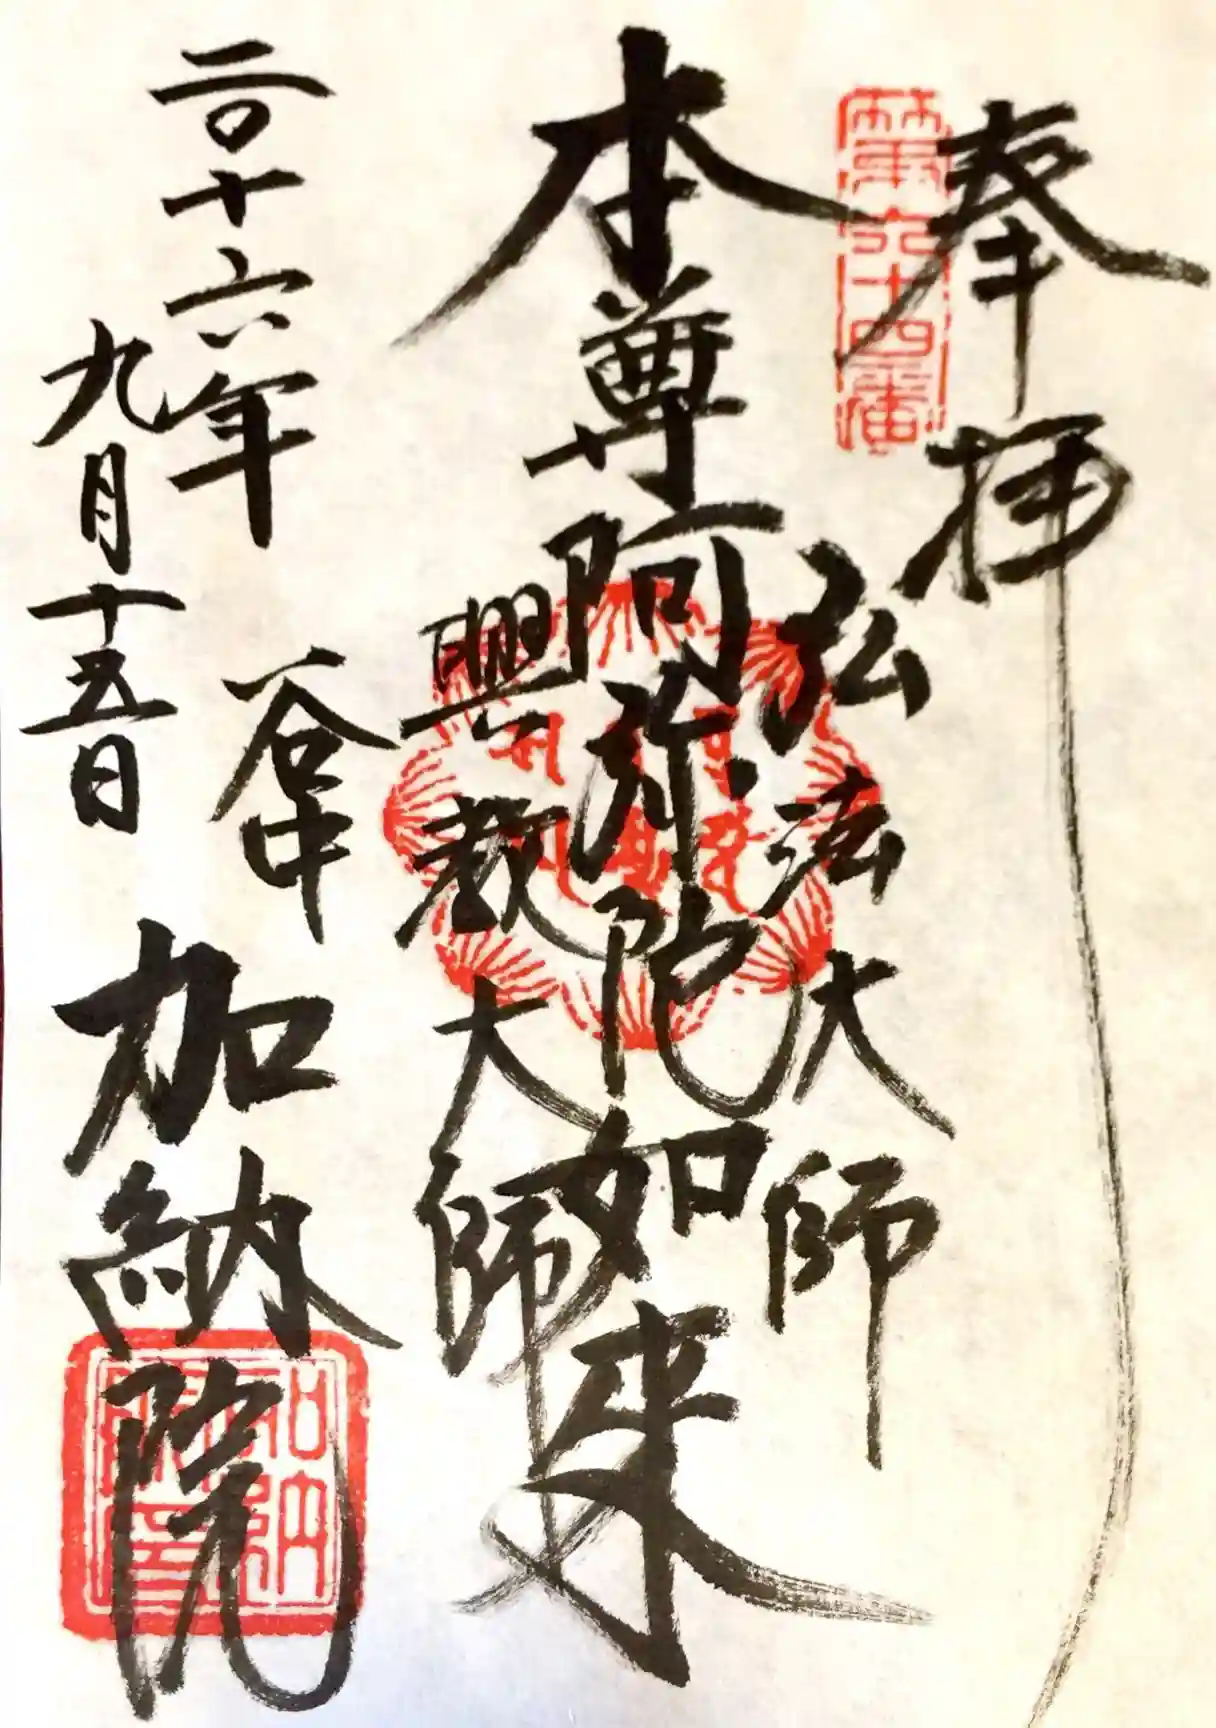 奉拝
第六十四番
弘法大師
本尊阿弥陀如来
興教大師
二〇十六年
九月十五日
谷中
加納院
加納院印